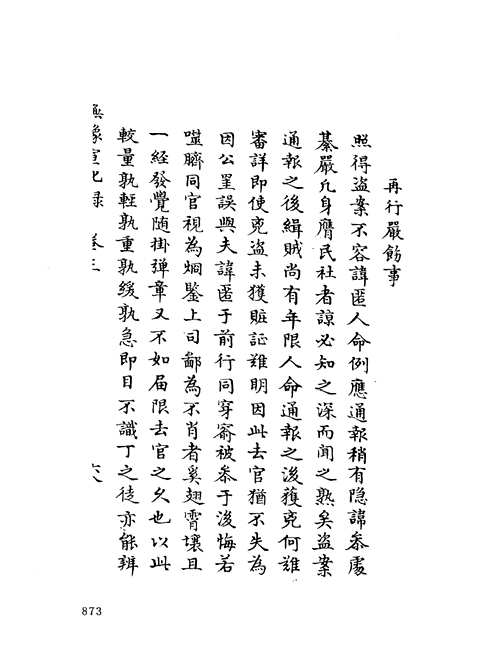 再行嚴飭事
照得盜案不容諱匿人命例應通報稍有隱諱叅處
綦嚴凡身膺民社者諒必知之深而聞之熟矣盜案
通報之後緝賊尚有年限人命通報之後獲兇何難
審詳即使兇盜未獲賍証難明因此去官猶不失為
因公罣誤與夫諱匿于前行同穿窬被叅于後悔若
噬臍同官視為烱鑒上司鄙為不肖者奚翅霄壤且
一經發覺随掛彈章又不如届限去官之久也以此
較量孰輕孰重孰緩孰急即目不識丁之徒亦能辨
撫豫宣化録 卷三 六八
873